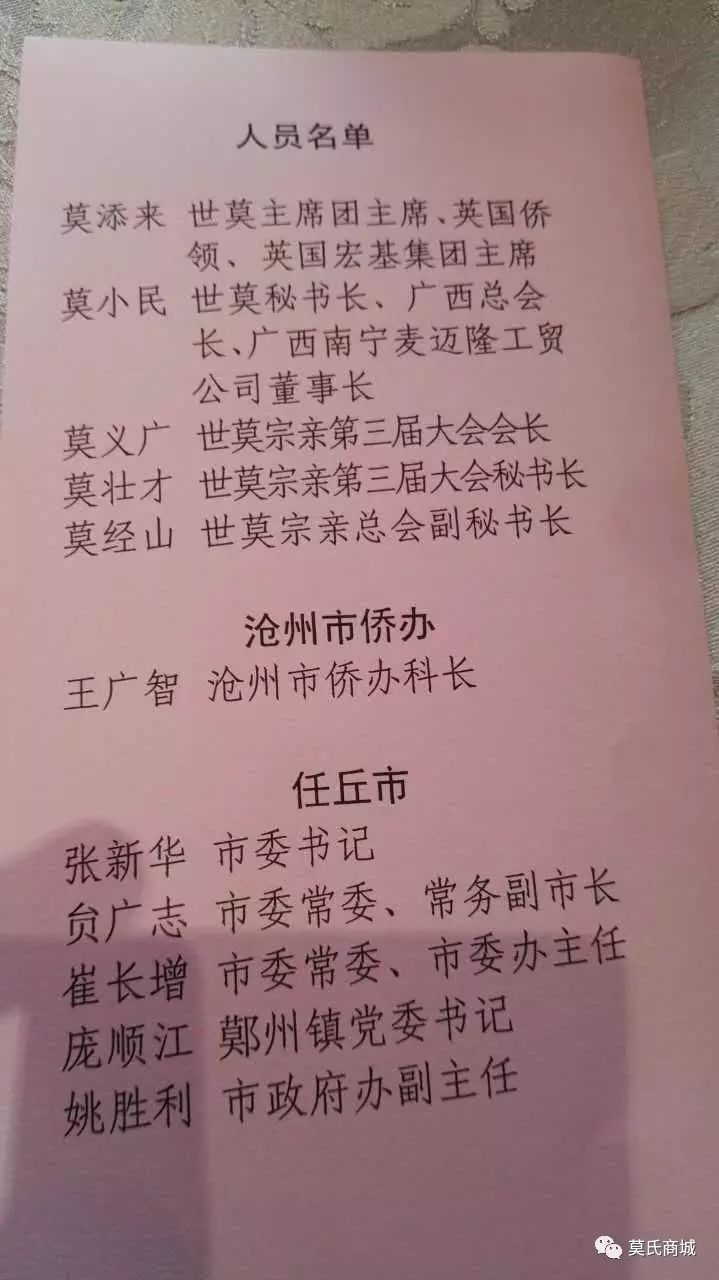 人员名单
莫添来 世莫主席团主席、英国侨
领、英国宏基集团主席
莫小民 世莫秘书长、广西总会
长、广西南宁麦迈隆工贸
公司董事长
莫义广 世莫宗亲第三届大会会长
莫壮才 世莫宗亲第三届大会秘书长
莫经山 世莫宗亲总会副秘书长
沧州市侨办
王广智 沧州市侨办科长
任丘市
张新华 市委书记
贠广志 市委常委、常务副市长
崔长增 市委常委、市委办主任
庞顺江 鄚州镇党委书记
姚胜利 市政府办副主任
莫氏商城